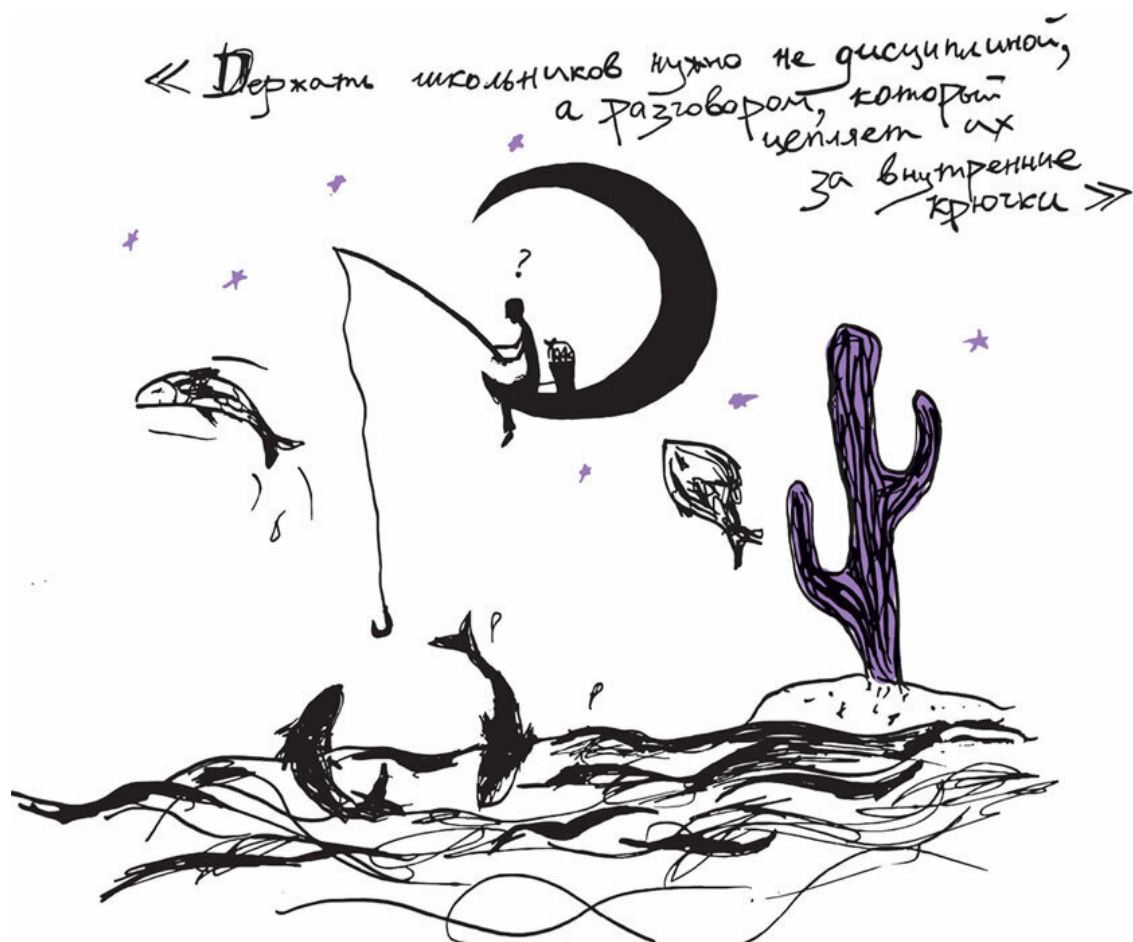 « Держать школьников нужно не дисциплиной,
а разговором, который
цепляет их
за внутренние
крючки »
?